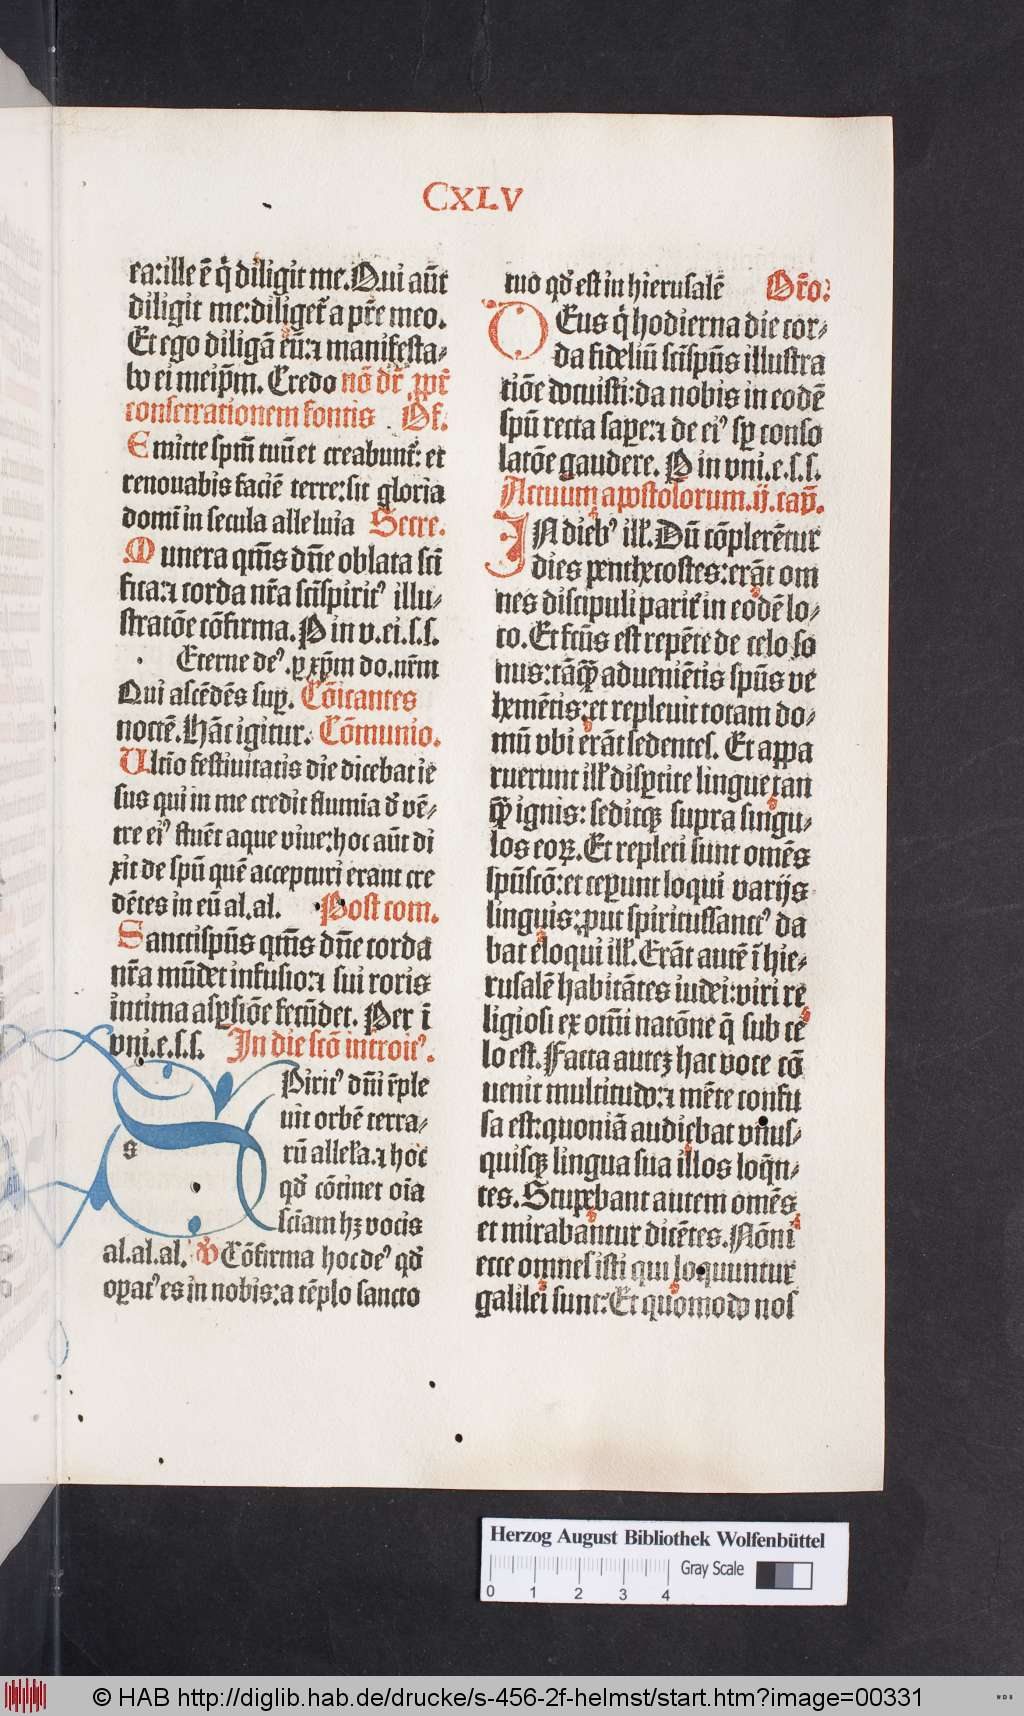 CXLV
ea:ille ē q̇ diligit me.Qui aūt
diligit me:diliget᷑ a pr̄e meo.
Et ego diligā eū:⁊ manifesta⸗
bo ei meip̄m. Credo nō dr̄ ꝓpt̄
consecrationem fontis Of.
Emitte spm̄ tuū et creabunt᷑: et
renouabis faciē terre:sit gloria
domī in secula alleluia Secre.
Munera q̄ms dn̄e oblata sc̄ti
fica:⁊ corda nr̄a sc̄ispirit⁹ illu⸗
stratōe cōfirma. P in v.ei.s.s.
Eterne de⁹.ꝑ xp̄m do.nr̄m
Qui ascēdēs suꝑ. Cōicantes
noctē.Hāc igitur. Cōmunio.
Ultīo festiuitatis die dicebat ie
sus qui in me credit flumīa d̕ vē⸗
tre ei⁹ fluēt aque viue:hoc aūt di
xit de spū quē accepturi erant cre
dētes in eū al.al. Post com.
Sanctispūs q̄ms dn̄e corda
nr̄a mūdet infusio:⁊ sui roris
intima aspsiōe fecūdet. Per ī
vni.e.s.s. In die scō introit⁹.
s
Pirit⁹ dn̄i r̄ple
uit orbē terra⸗
rū allel̕a.⁊ hoc
qd̕ cōtinet oīa
sciam hꝫ vocis
al.al.al. ℣ Cōfirma hoc de⁹ qd̕
oꝑat⁹ es in nobis:a tēplo sancto
tuo qd̕ est in hierusalē Or̄o.
DEus q̇ hodierna die cor⸗
da fideliū sc̄ispūs illustra
tiōe docuisti:da nobis in eodē
spū recta saꝑe:⁊ de ei⁹ sꝑ conso
latōe gaudere. P in vni.e.s.s.
Actuum apostolorum.ij.cap̄.
IN dieb⁹ ill̕.Dū cōplerētur
dies penthecostes:erāt om
nes discipuli parit᷑ in eodē lo⸗
co. Et fcūs est repēte de celo so
nus:tāꝙ̄ aduenientis spūs ve
hemētis:et repleuit totam do⸗
mū vbi erāt sedentes. Et appa
ruerunt ill̕ disꝑtite lingue tan
ꝙ̄ ignis: seditqꝫ supra singu⸗
los eoꝝ. Et repleti sunt omēs
spūscō:et ceꝑunt loqui varijs
linguis:ꝓut spiritussanct⁹ da
bat eloqui ill̕. Erāt autē ī hie⸗
rusalē habitātes iudei:viri re
ligiosi ex om̄i natōne q̄ sub ce
lo est. Facta autēꝫ hac voce cō
uenit multitudo:⁊ mēte confu
sa est:quoniā audiebat vnus⸗
quisqꝫ lingua sua illos loq̄n⸗
tes. Stupebant autem omēs
et mirabantur dicētes. Nōni
ecce omnes isti qui loquuntur
galilei sunt:Et quomodo nos
Herzog August Bibliothek Wolfenbüttel
Gray Scale
0 1 2 3 4
© HAB http://diglib.hab.de/drucke/s-456-2f-helmst/start.htm?image=00331